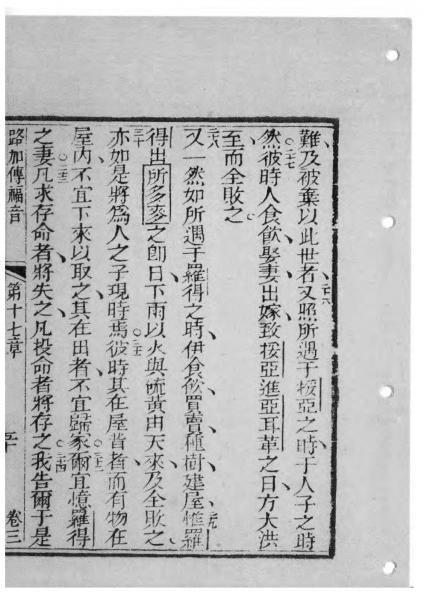 難及被棄以此世者二六又照所遇于挼亞之時于人子之時
二七然彼時人食飲娶妻出嫁致挼亞進亞耳革之日方大洪
至而全敗之
二八又一然如所遇于羅得之時伊食飲買賣種樹建屋二九惟羅
得出所多麥之即日下雨以火與硫黃由天來及全敗之
三十亦如是將為人之子現時焉三一彼時其在屋背者而有物在
屋內不宜下來以取之其在出者不宜歸家三二爾宜憶羅得
之妻三三凡求存命者將失之凡投命者將存之三四我告爾于是
路加傳福音 第十七章 二十 卷三